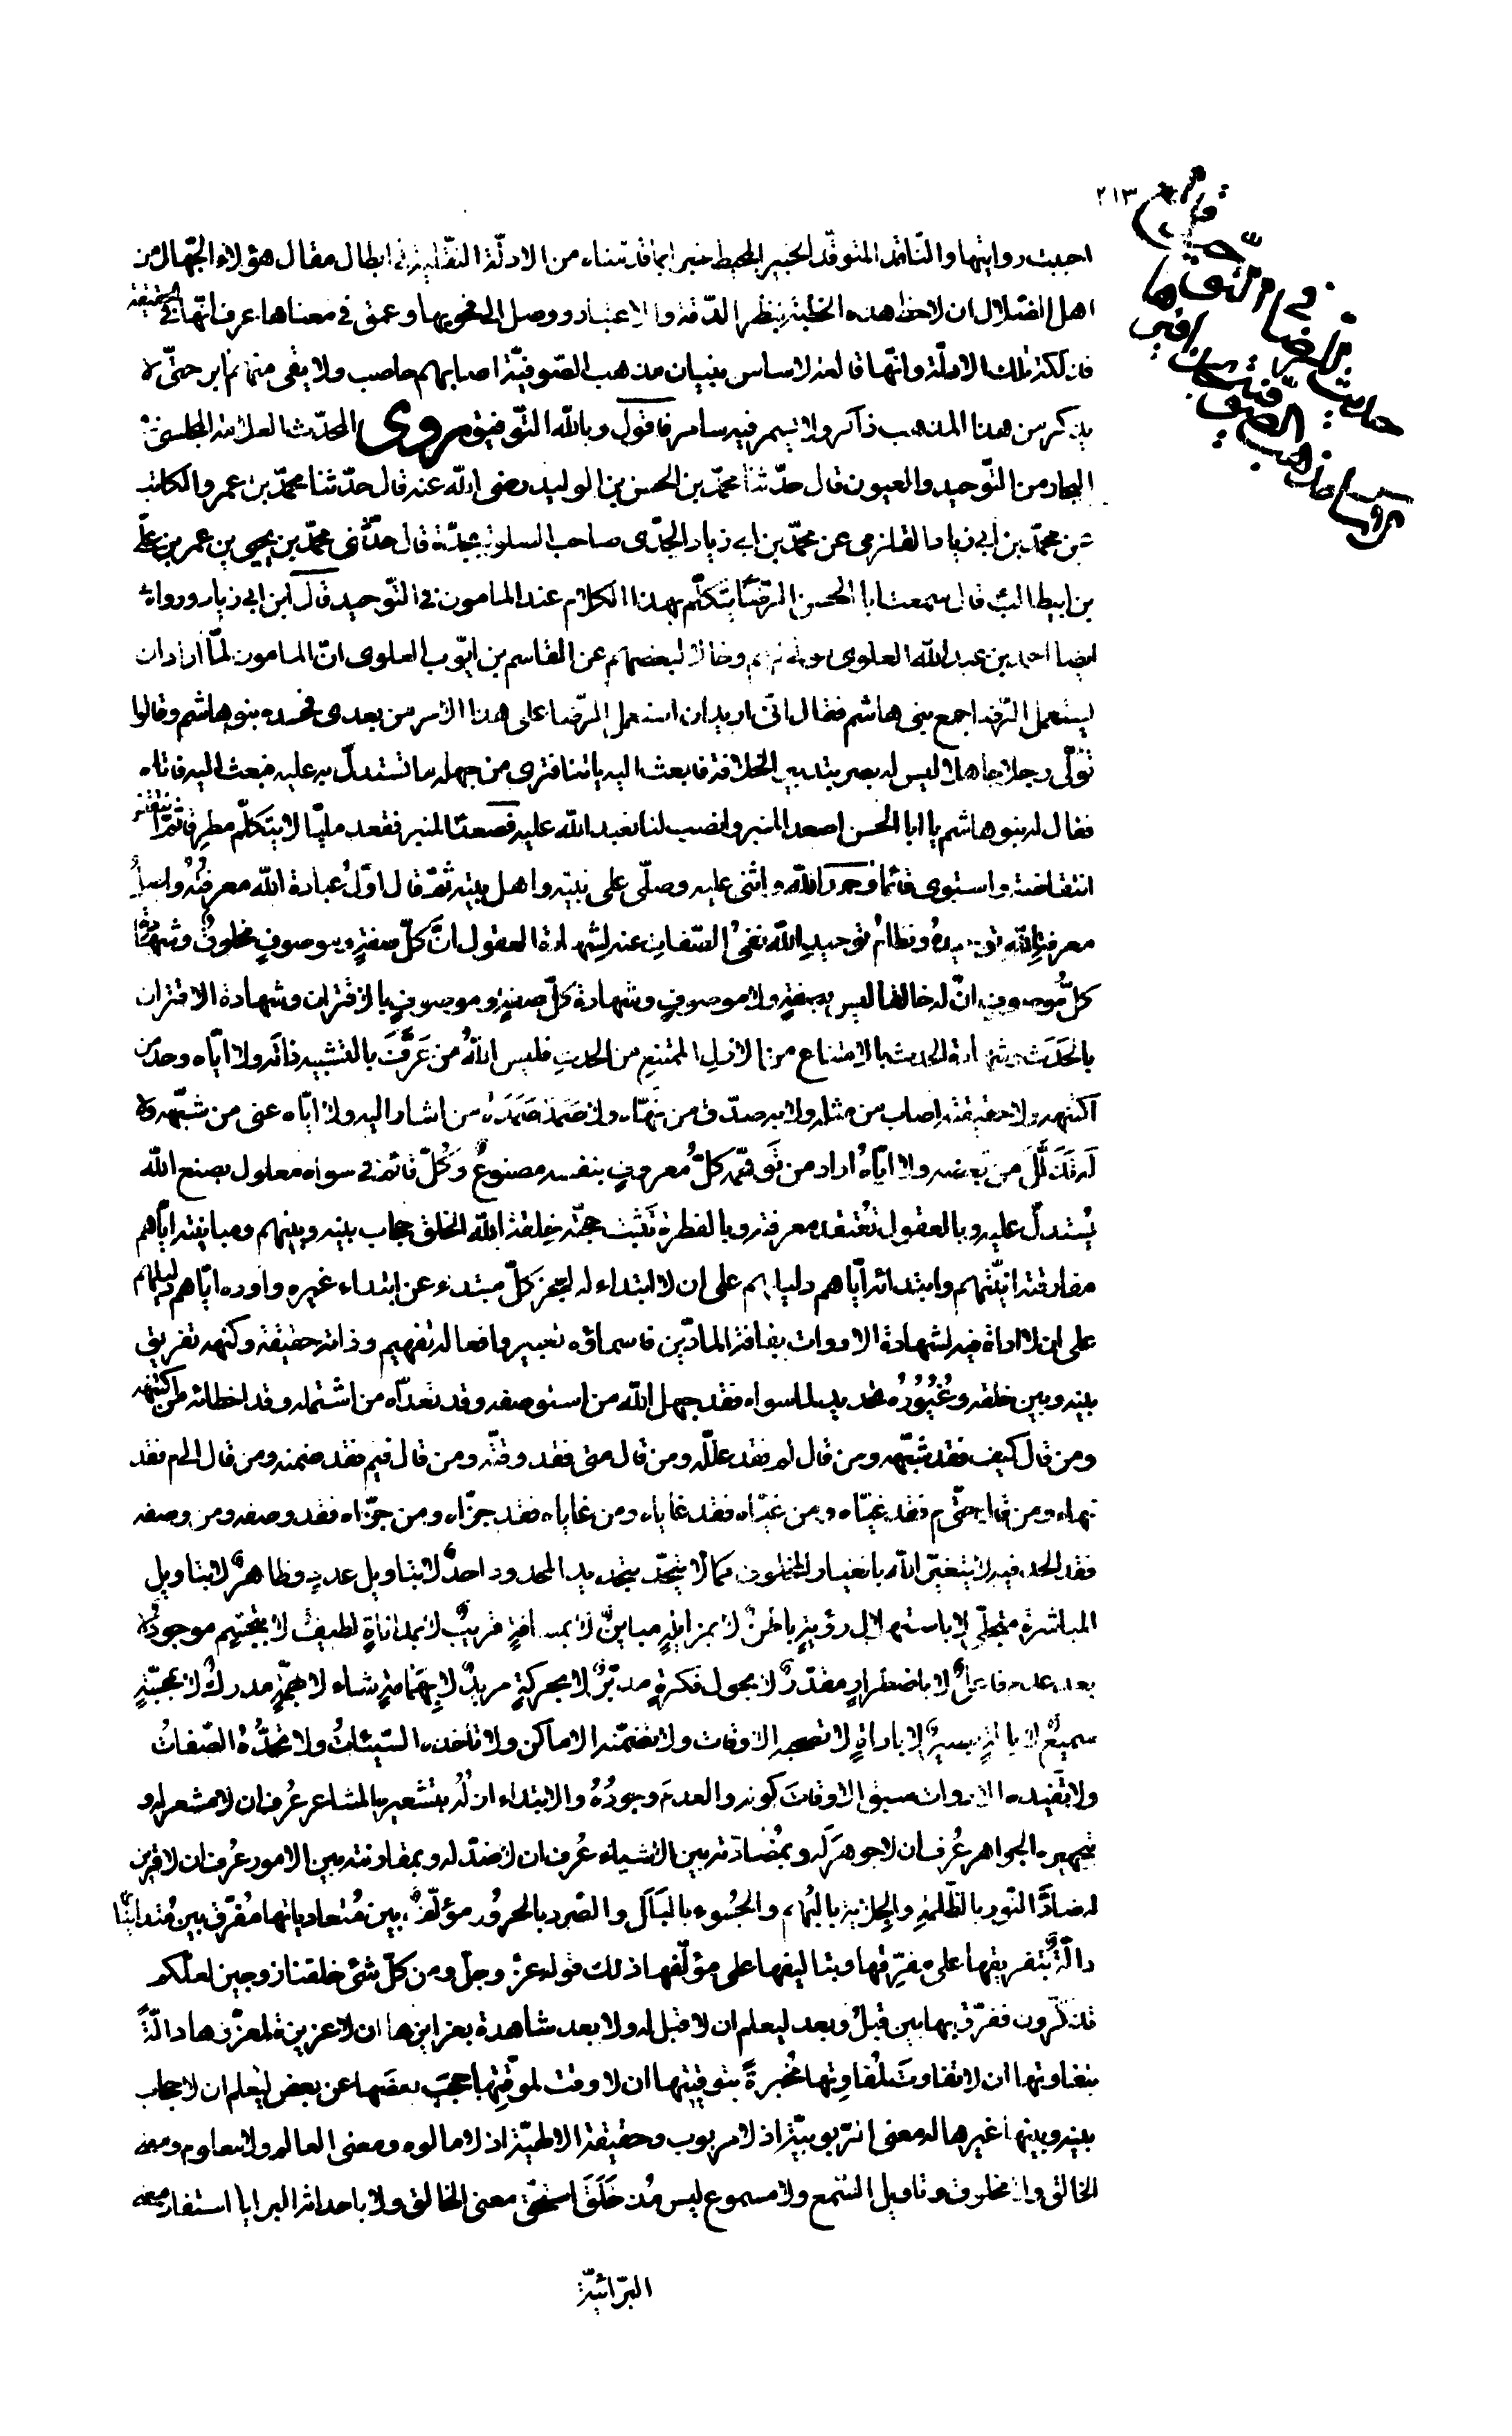 ٢١٣
احببت روايتها والناقد المتوقد الخبير المحيط خبرا بما قدمناه من الادلّة النقليّة في ابطال مقال هؤلاء الجهّال من
اهل الضلال ان لاحظ هذه الخطبة بنظر الدقة والاعتبار ووصل الى فحويها وعمق في معناها عرف انّها في الحقيقة
فذلكة تلك الادلّة وانّها قالعة لاساس بنيان مذهب الصّوفيّة اصابهم حاصب ولا بقى منهم آبر حتّى لا
يذكر من هذا المذهب ذاكر ولا يسمر فيه سامر فاقول وبالله التّوفيق روى المحدّث العلامة المجلسىّ في
البحار من التّوحيد والعيون قال حدّثنا محمّد بن الحسن بن الوليد رضى الله عنه قال حدّثنا محمّد بن عمرو الكاتب
عن محمّد بن ابي زياد القلزمى عن محمّد بن ابي زياد الجدّى صاحب الصلوة بجدّة قال حدّثنى محمّد بن يحيى بن عمر بن علىّ
بن ابيطالب قال سمعت ابا الحسن الرّضا يتكلّم بهذا الكلام عند المامون في التّوحيد قال ابن ابي زياد ورواه
ايضا احمد بن عبد الله العلوى مولى لهم وخالا لبعضهم عن القاسم بن ايّوب العلوى انّ المامون لمّا اراد ان
يستعمل الرّضا جمع بنى هاشم فقال انّى اريد ان استعمل الرّضا على هذا الامر من بعدى فحسده بنو هاشم وقالوا
تولّى رجلا جاهلا ليس له بصر بتدبير الخلافة فابعث اليه ياتنا فترى من جهله ما تستدلّ به عليه فبعث اليه فاتاه
فقال له بنو هاشم يا ابا الحسن اصعد المنبر وانصب لنا نعبد الله عليه فصعد المنبر فقعد مليّا لا يتكلّم مطرقا ثمّ انتفض
انتفاضة واستوى قائما وحمد الله واثنى عليه وصلّى على نبيّه واهل بيته ثمّ قال اوّلُ عبادة الله معرفتُه واصلُ
معرفةِ الله توحيدُهُ ونظامُ توحيدِ الله نفىُ الصّفات عنه لشهادة العقول انّ كلّ صفةٍ وموصوفٍ مخلوقٌ وشهادة
كلّ موصوفٍ انّ له خالقا ليس بصفةٍ ولا موصوفٍ وشهادة كلّ صفةٍ وموصوفٍ بالاقتران وشهادة الاقتران
بالحَدَث وشهادة الحدث بالامتناع من الازلِ الممتنعِ من الحدثِ فليس اللهُ من عَرَفَ بالتشبيه ذاته ولا ايّاه وحّد من
اكتنهه ولا حقيقته اصاب من مثله ولا به صدّق من نهّاه ولا صَمَدَ صَمَدَه من اشار اليه ولا ايّاه عنى من شبّهه ولا
له تَذَلَّلَ من بعّضه ولا ايّاهُ اراد من تَوَهّمه كلُّ معروفٍ بنفسه مصنوعٌ وكُلّ قائم في سواه معلول بصنع الله
يُستدلّ عليه وبالعقول تُعتقد معرفته وبالفطرة تَثبت حجّته خلقة الله الخلق حجاب بينه وبينهم ومباينته ايّاهم
مفارقته انيّتهم وابتدائه ايّاهم دليلهم على ان لا ابتداء له لعجز كلّ مبتدء عن ابتداء غيره وادوه ايّاهم دليلهم
على ان لا اداة فيه لشهادة الادوات بفاقة المادّين فاسماؤه تعبير وافعاله تفهيم وذاته حقيقة وكنهه تفريق
بينه وبين خلقه وغُبُورُه تحديد لما سواه فقد جهل الله من استوصفه وقد تعدّاه من اشتمله وقد اخطائه من اكتنهه
ومن قال كيف فقد شبّهه ومن قال لم فقد علّله ومن قال متى فقد وقّته ومن قال فيم فقد ضمنه ومن قال الى م فقد
نهاه ومن قال حتّى م فقد غيّاه ومن غيّاه فقد غاياه ومن غاياه فقد جزّاه ومن جزّاه فقد وصفه ومن وصفه
فقد الحد فيه لا يتغيّر الله بانغيار المخلوق كما لا يتحدّد بتحديد المحدود احدٌ لا بتاويل عددٍ وظاهرٌ لا بتاويل
المباشرة متجلّى لا باستهلال رؤيةٍ باطنٌ لا بمزايلةٍ مباينٌ لا بمسافةٍ قريبٌ لا بمداناةٍ لطيفٌ لا بتجسّم موجودٌ لا
بعد عدم فاعلٌ لا باضطرارٍ مقدّرٌ لا بحول فكرةٍ مدبّرٌ لا بحركةٍ مريدٌ لا بهمامةٍ شاء لا بهمّةٍ مدركٌ لا بمجسّةٍ
سميعٌ لا بآلةٍ بصيرٌ لا باداةٍ لا تصحبه الاوقات ولا تضمّنه الاماكن ولا تأخذه السّيئاتُ ولا تحدُّهُ الصّفاتُ
ولا تقيّده الادوات سبق الاوقاتَ كونه والعدمَ وجودُهُ والابتداء ازلُه بتشعيره المشاعر عُرف ان لا مشعر له و
بتجهيره الجواهر عُرف ان لا جوهرَ له وبمُضادّته بين الاشياء عُرف ان لا ضدّ له وبمقارنته بين الامور عُرف ان لا قرين
له ضادَّ النّور بالظّلمةِ والجلاية بالبُهم والجُسُوء بالبَلَل والصّرد بالحرُور مؤلّفٌ بين مُتعادياتها مُفرّق بين مُتدانياتها
دالّةٌ بتفريقها على مفرّقها وبتاليفها على مؤلّفها ذلك قوله عزّ وجلّ ومن كلّ شئ خلقنا زوجين لعلّكم
تذكّرون ففرّق بها بين قبلُ وبعد ليعلم ان لا قبل له ولا بعد شاهدة بغرايزها ان لا غريزة لمغرّزها دالّةً
بتفاوتها ان لا تفاوتَ لمُفاوِتها مُخبرةً بتوقيتها ان لا وقت لموقّتِها حجبَ بعضَها عن بعض ليُعلم ان لا حجاب
بينه وبينها غيرها له معنى الرّبوبيّة اذ لا مربوب وحقيقة الالهيّة اذ لا مالوه ومعنى العالم ولا معلوم ومعنى
الخالق ولا مخلوق وتاويل السّمع ولا مسموع ليس مُذ خَلَقَ استحقّ معنى الخالق ولا باحداثه البرايا استفاد معنى
البرّائيّة